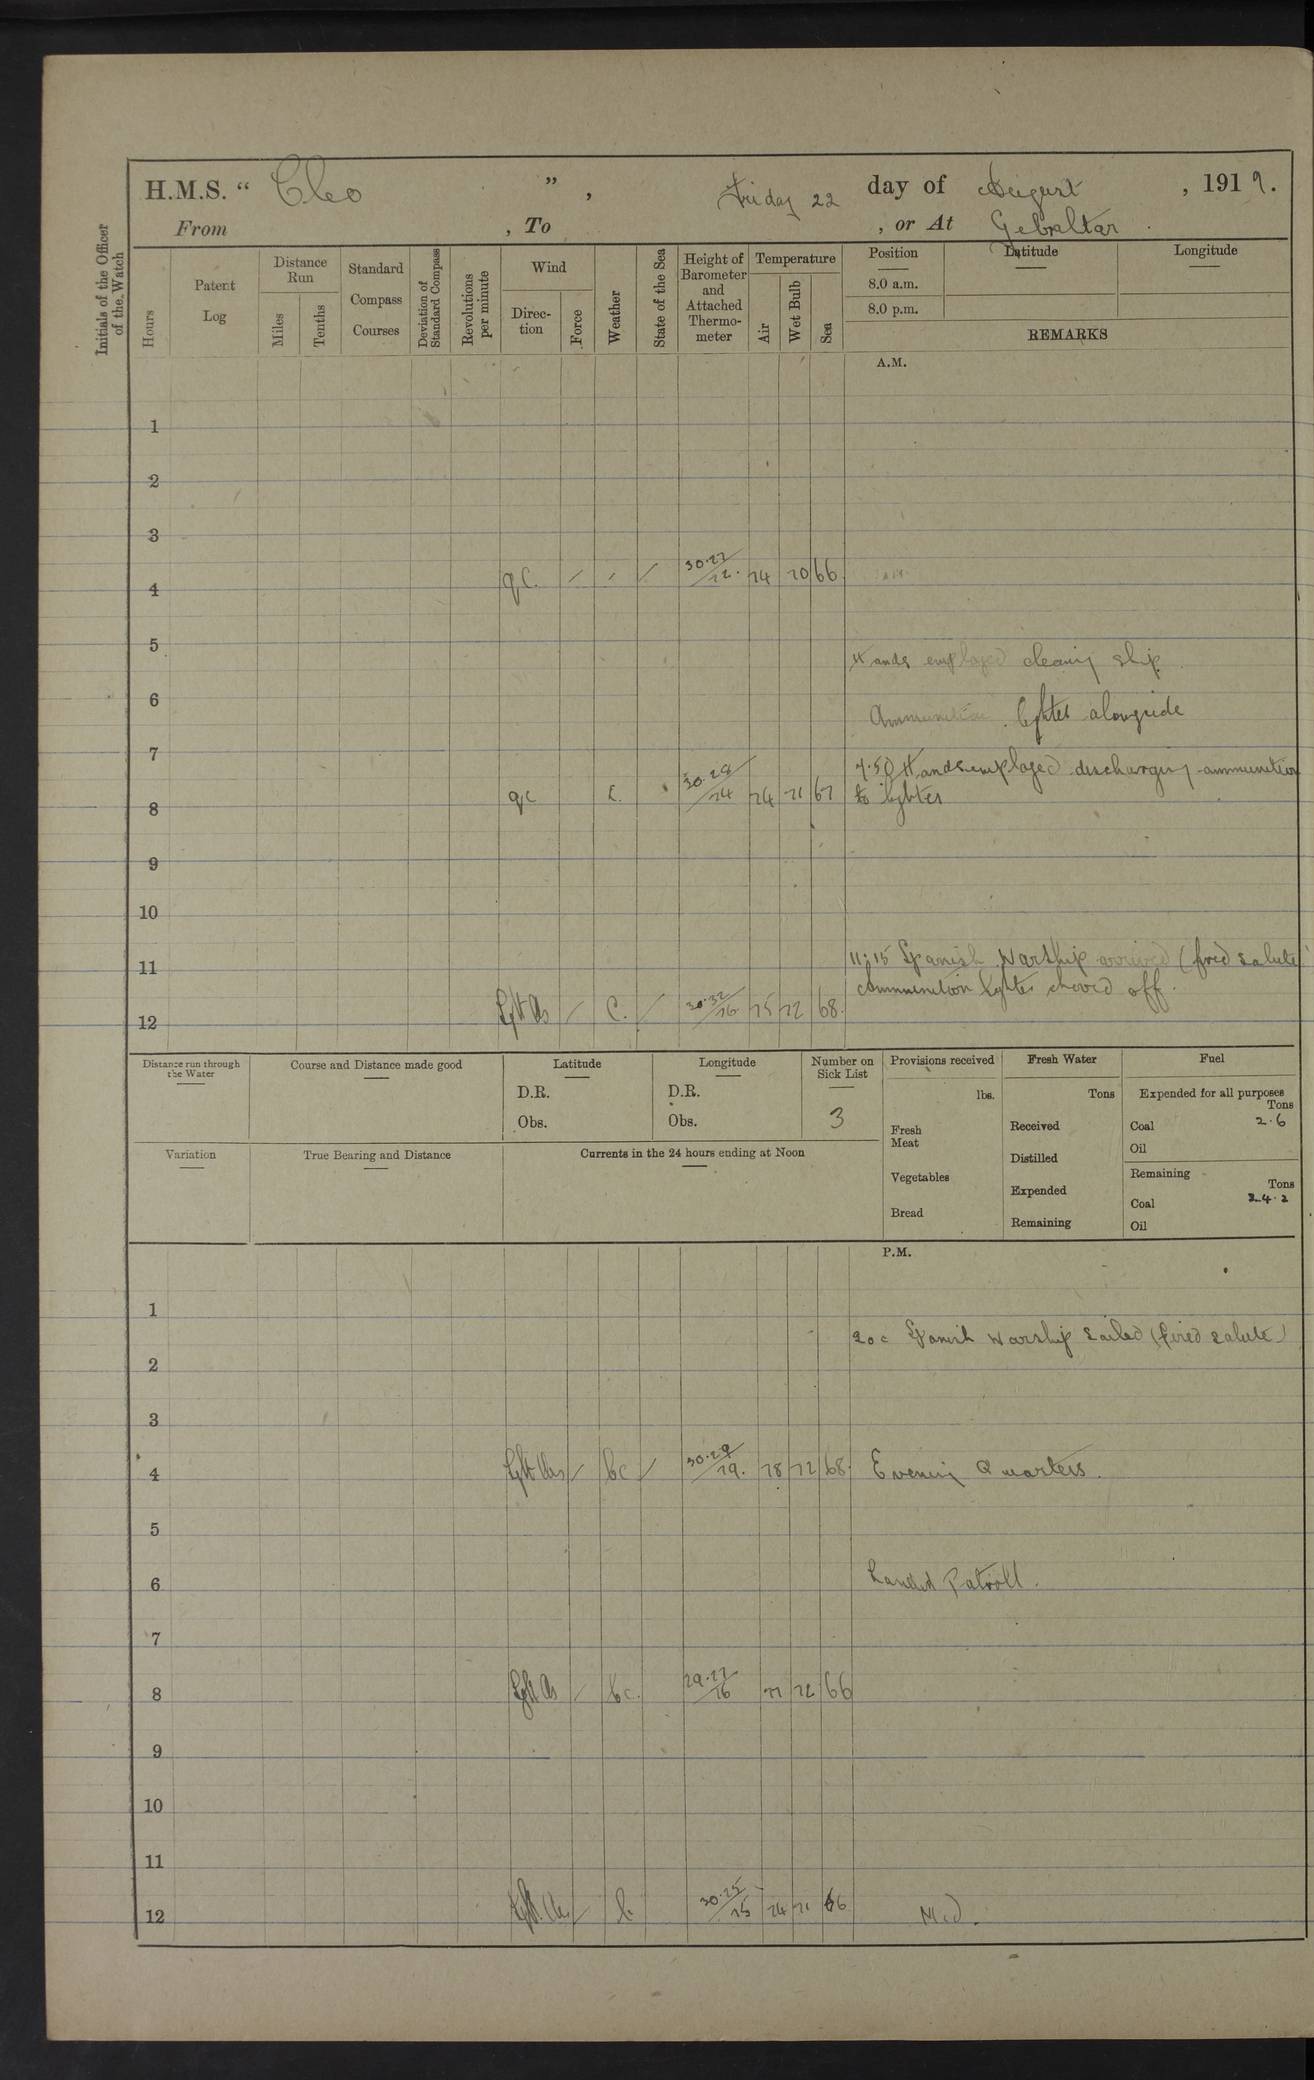 H.M.S. “ Cleo ” , Friday 22 day of August , 1919.
From , To , or At Gibraltar
Initials of the Officer of the Watch
Hours
Patent Log
Distance Run
Miles
Tenths
Standard Compass Courses
Deviation of Standard Compass
Revolutions per minute
Wind
Direction
Force
Weather
State of the Sea
Height of Barometer and Attached Thermometer
Temperature
Air
Wet Bulb
Sea
Position Latitude Longitude
8.0 a.m.
8.0 p.m.
REMARKS
A.M.
1
2
3
4 / / / 30.27/72. 74 70 66
5
Hands employed cleaning ship
6
Ammunition lighter alongside
7
7.50 Hands employed discharging ammunition
8 c. 30.28/74 74 71 67 to lighter
9
10
11:15 Spanish Warship arrived (fired salute)
11
Ammunition lighter shoved off.
12 Lgt As / C. / 30.32/76 75 72 68.
Distance run through the Water
Course and Distance made good
Latitude
D.R.
Obs.
Longitude
D.R.
Obs.
Number on Sick List
3
Variation
True Bearing and Distance
Currents in the 24 hours ending at Noon
Provisions received
lbs.
Fresh Meat
Vegetables
Bread
Fresh Water
Tons
Received
Distilled
Expended
Remaining
Fuel
Expended for all purposes
Tons
Coal 2.6
Oil
Remaining
Tons
Coal 24.2
Oil
P.M.
1
Spanish Warship Sailed (fired salute)
2
3
4 Lgt As / bc / 30.29/79. 78 72 68. Evening Quarters.
5
6 Landed Patroll.
7
8 Lgt As / bc. 29.27/76 77 72 66
9
10
11
12 Lgt. As / b. 30.25/75 74 71 66 Mid.